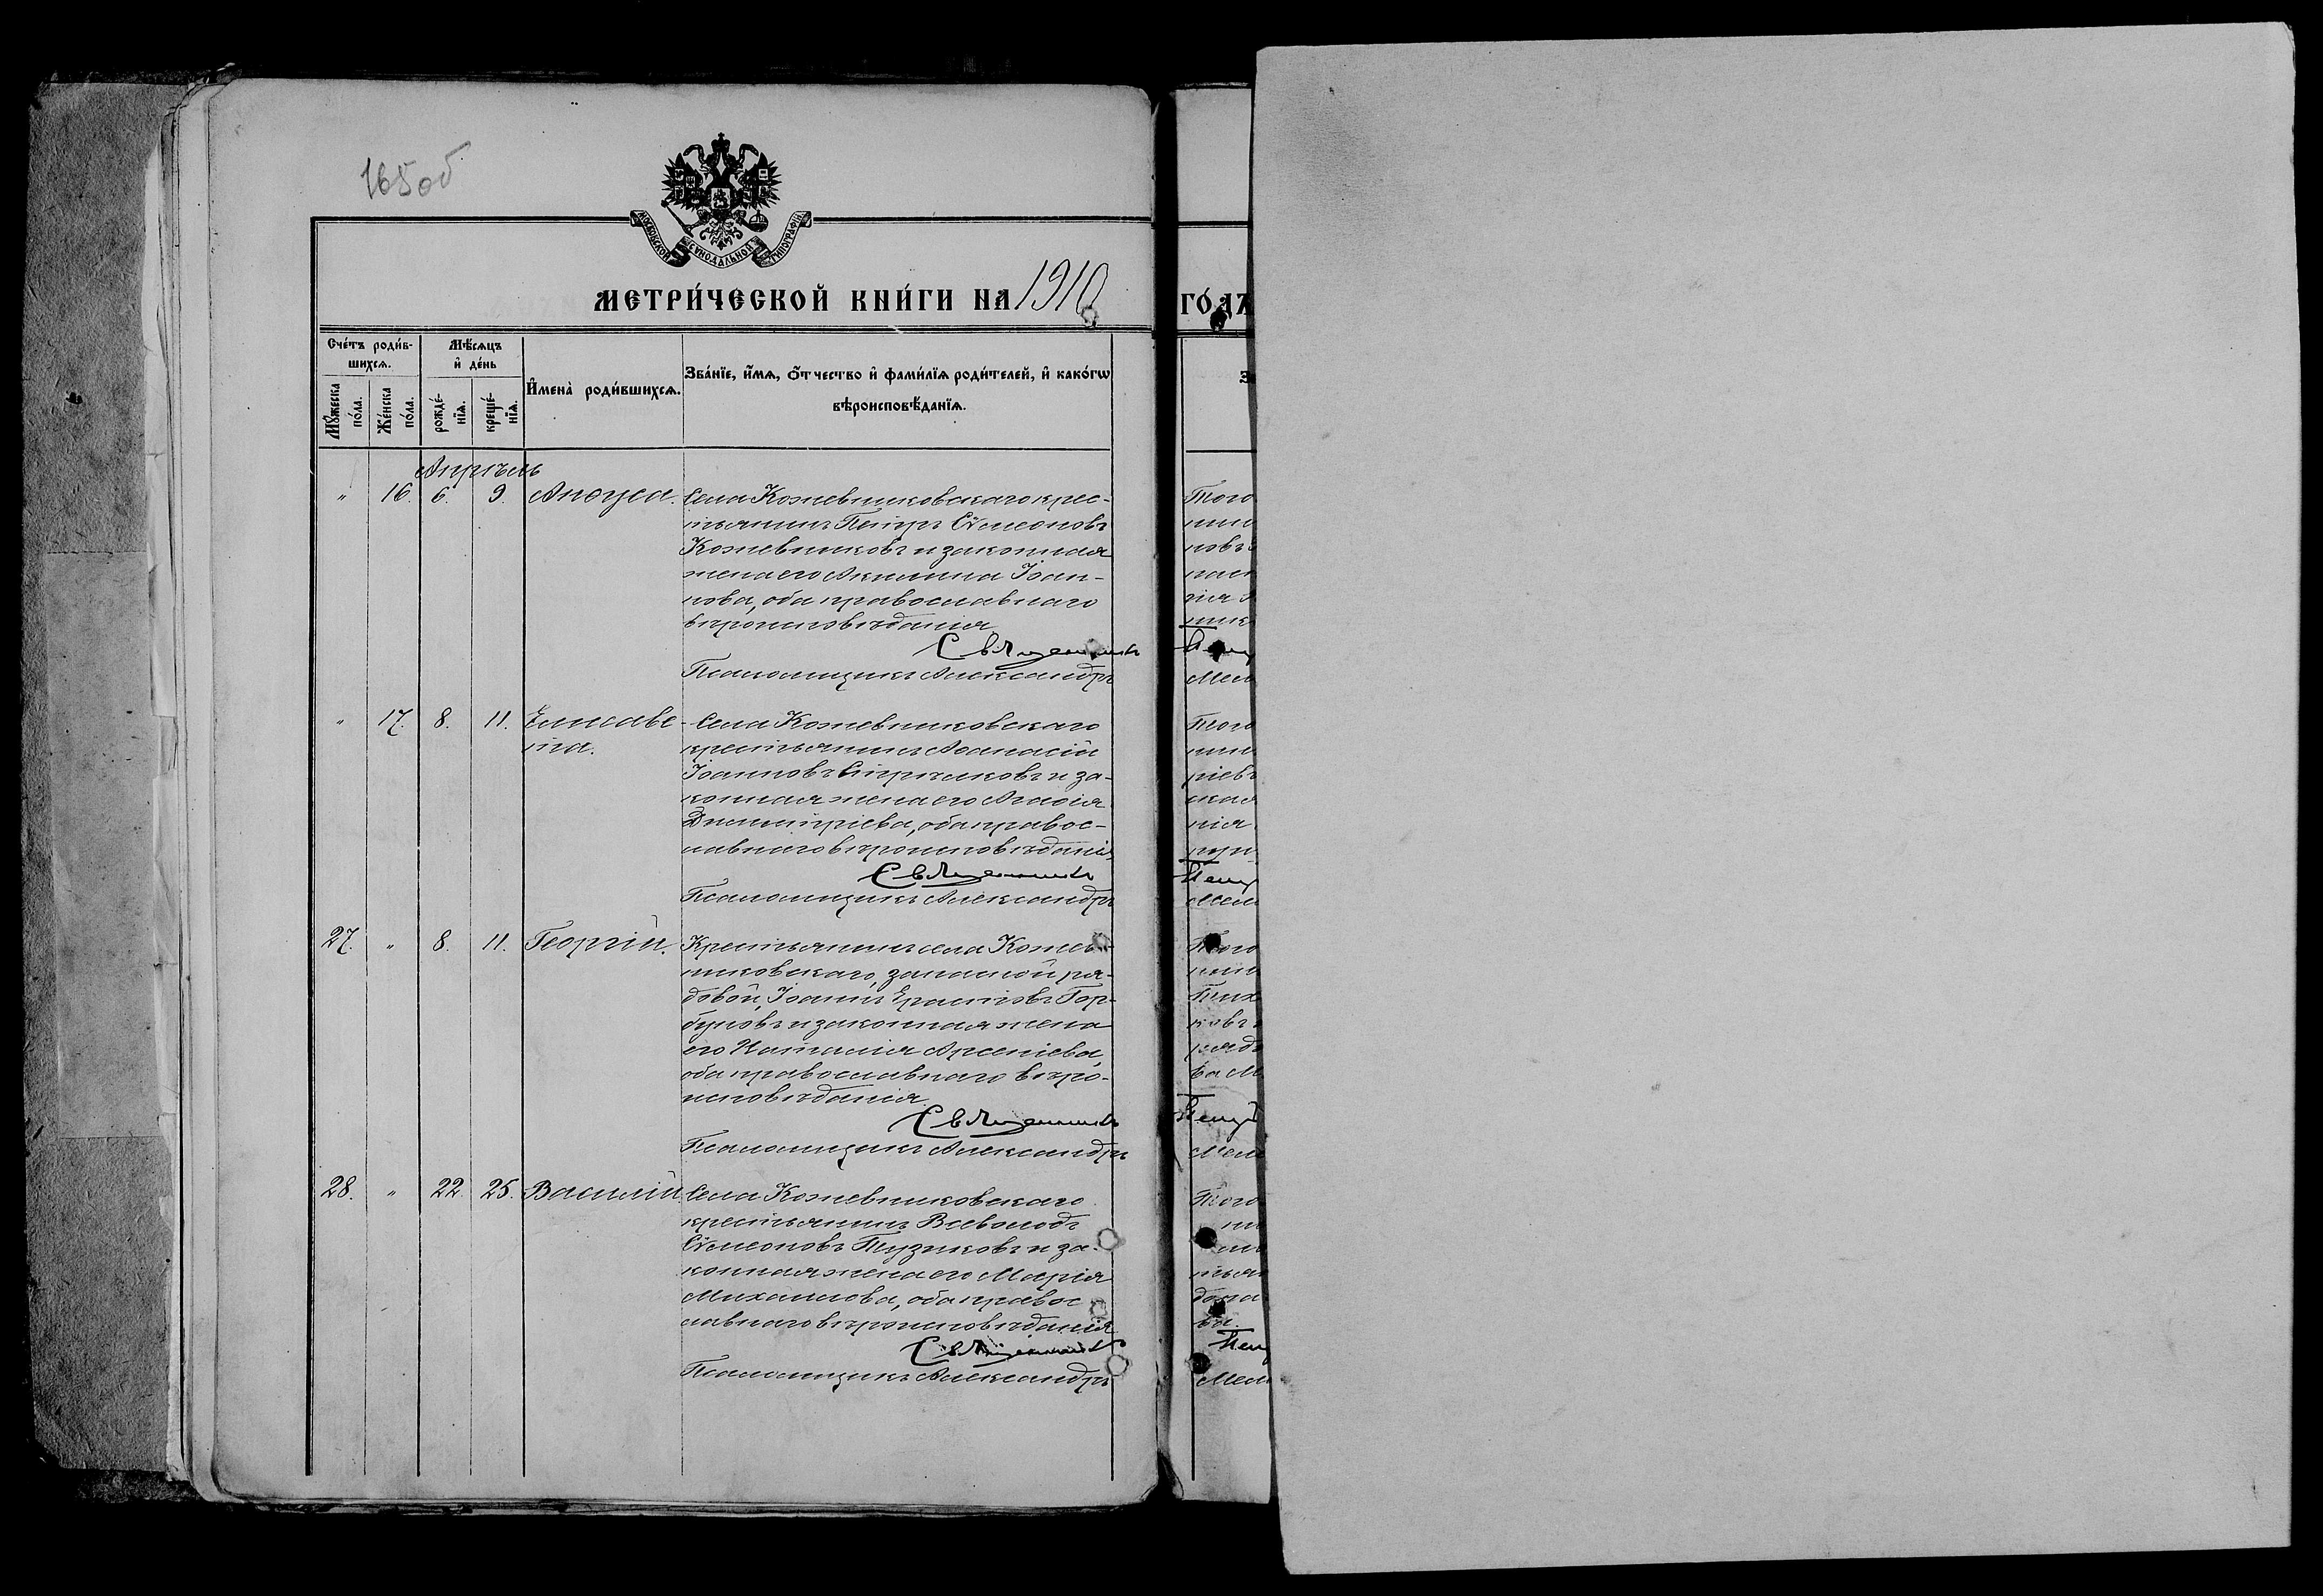 165об
МОСКОВСКОЙ СѴНОДАЛЬНОЙ ТИПОГРАФІИ
МЕТРИ́ЧЕСКОЙ КНИ́ГИ НА 1910 ГО́ДЪ
Сче́тъ роди́в-
шихсѧ.
Мѣ́сѧцъ
и҆ де́нь
Мꙋ́жеска
по́ла.
Же́нска
по́ла.
рожде́-
нїѧ.
креще́-
нїѧ.
И҆мена̀ роди́вшихсѧ.
Зва́нїе, и҆́мѧ, ѻ҆́тчество и҆ фами́лїѧ роди́телей, и҆ како́гѡ
вѣроисповѣ́данїѧ.
Апрѣль
" 16. 6. 9. Апѳуса. Села Кожевниковскаго крес-
тьянинъ Петръ Сѵмеоновъ
Кожевниковъ и законная
жена его Акилина Іоан-
нова, оба православнаго
вѣроисповѣданія
Священникъ
Псаломщикъ Александръ
" 17. 8. 11. Елисаве- Села Кожевниковскаго
та. крестьянинъ Аѳанасій
Іоанновъ Стрѣлковъ и за-
конная жена его Агаѳія
Димитріева, оба правос-
лавнаго вѣроисповѣданія
Священникъ
Псаломщикъ Александръ
27. " 8. 11. Георгій. Крестьянинъ села Кожев-
никовскаго, запасной ря-
довой, Іоаннъ Ерастовъ Гор-
буновъ и законная жена
его Наталія Арсеніева,
оба православнаго вѣро-
исповѣданія
Священникъ
Псаломщикъ Александръ
28. " 22. 25. Василій Села Кожевниковскаго
крестьянинъ Всеволодъ
Сѵмеоновъ Пузиковъ и за-
конная жена его Марія
Михаилова, оба правос
лавнаго вѣроисповѣданія
Священникъ
Псаломщикъ Александръ